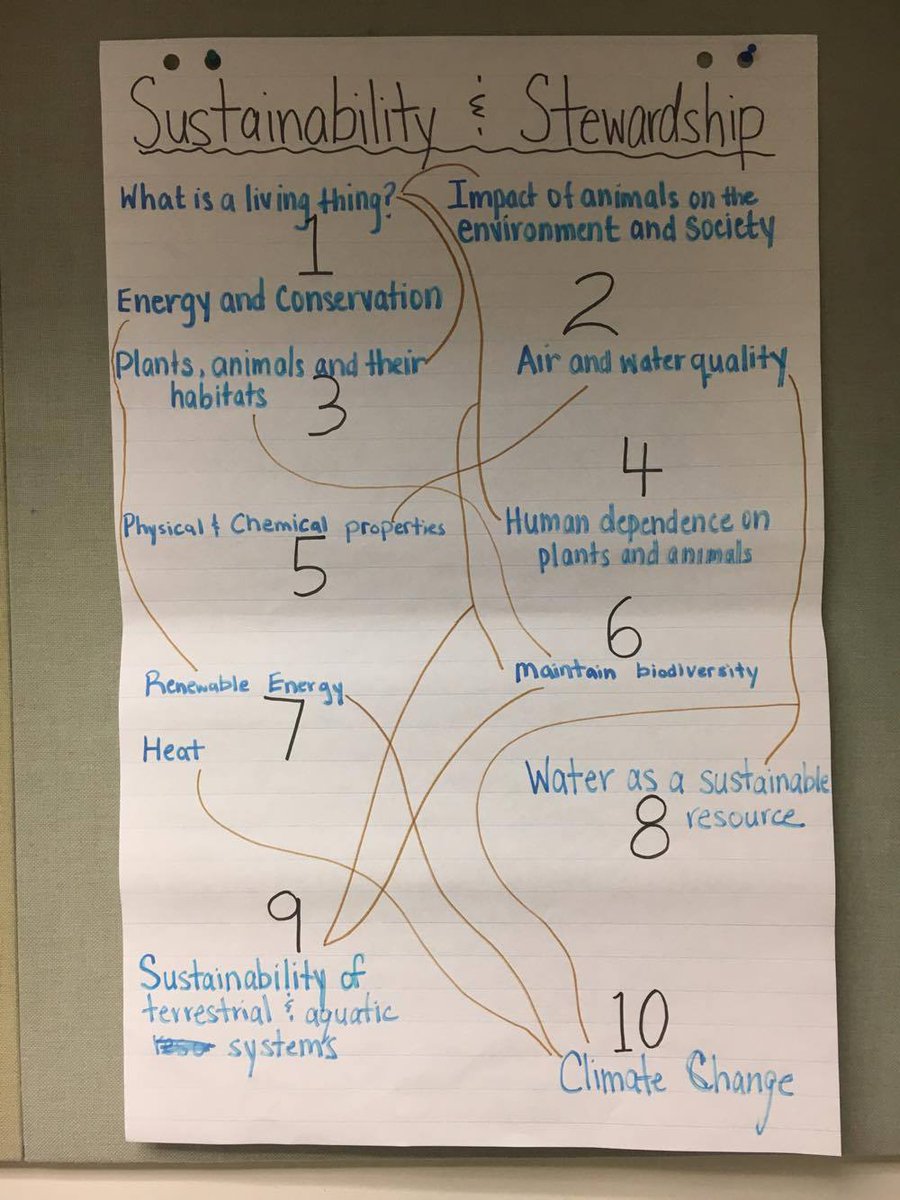 Sustainability & Stewardship
What is a living thing?
1
Impact of animals on the
environment and Society
Energy and Conservation
2
Plants, animals and their
habitats
3
Air and water quality
4
Physical & Chemical properties
5
Human dependence on
plants and animals
6
Renewable Energy
7
Maintain biodiversity
Heat
Water as a sustainable
resource
8
9
Sustainability of
terrestrial & aquatic
system's
10
Climate Change